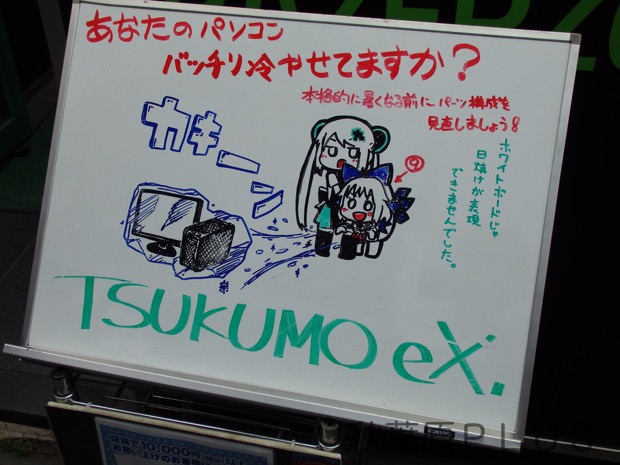 あなたのパソコン
バッチリ冷やせてますか？
本格的に暑くなる前にパーツ構成を
見直しましょう!
カキーン
⑨
ホワイトボードじゃ
日焼けが表現
できませんでした。
TSUKUMO eX.
店頭で10,000円
お買い上げのお客様
PLUS